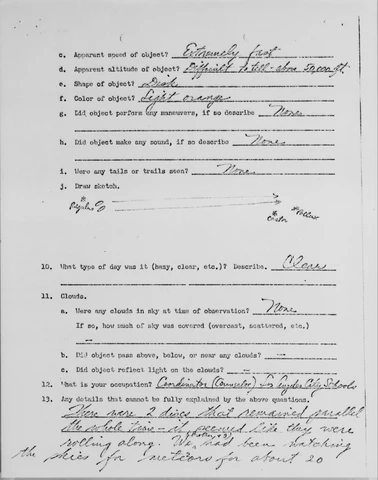 c. Apparent speed of object? Extremely fast
d. Apparent altitude of object? Difficult to tell - above 50,000 ft.
e. Shape of object? Disk
f. Color of object? Light orange
g. Did object perform any maneuvers, if so describe None
h. Did object make any sound, if so describe None
i. Were any tails or trails seen? None
j. Draw sketch.
Regulus
Castor
Pollux
10. What type of day was it (hazy, clear, etc.)? Describe. Clear
11. Clouds.
a. Were any clouds in sky at time of observation? None
If so, how much of sky was covered (overcast, scattered, etc.)
b. Did object pass above, below, or near any clouds? —
c. Did object reflect light on the clouds? —
12. What is your occupation? Coordinator (Counselor) for Snyder City Schools
13. Any details that cannot be fully explained by the above questions.
There were 2 discs that remained parallel
the whole time - it seemed like they were
rolling along. We had been watching
the skies for meteors for about 20